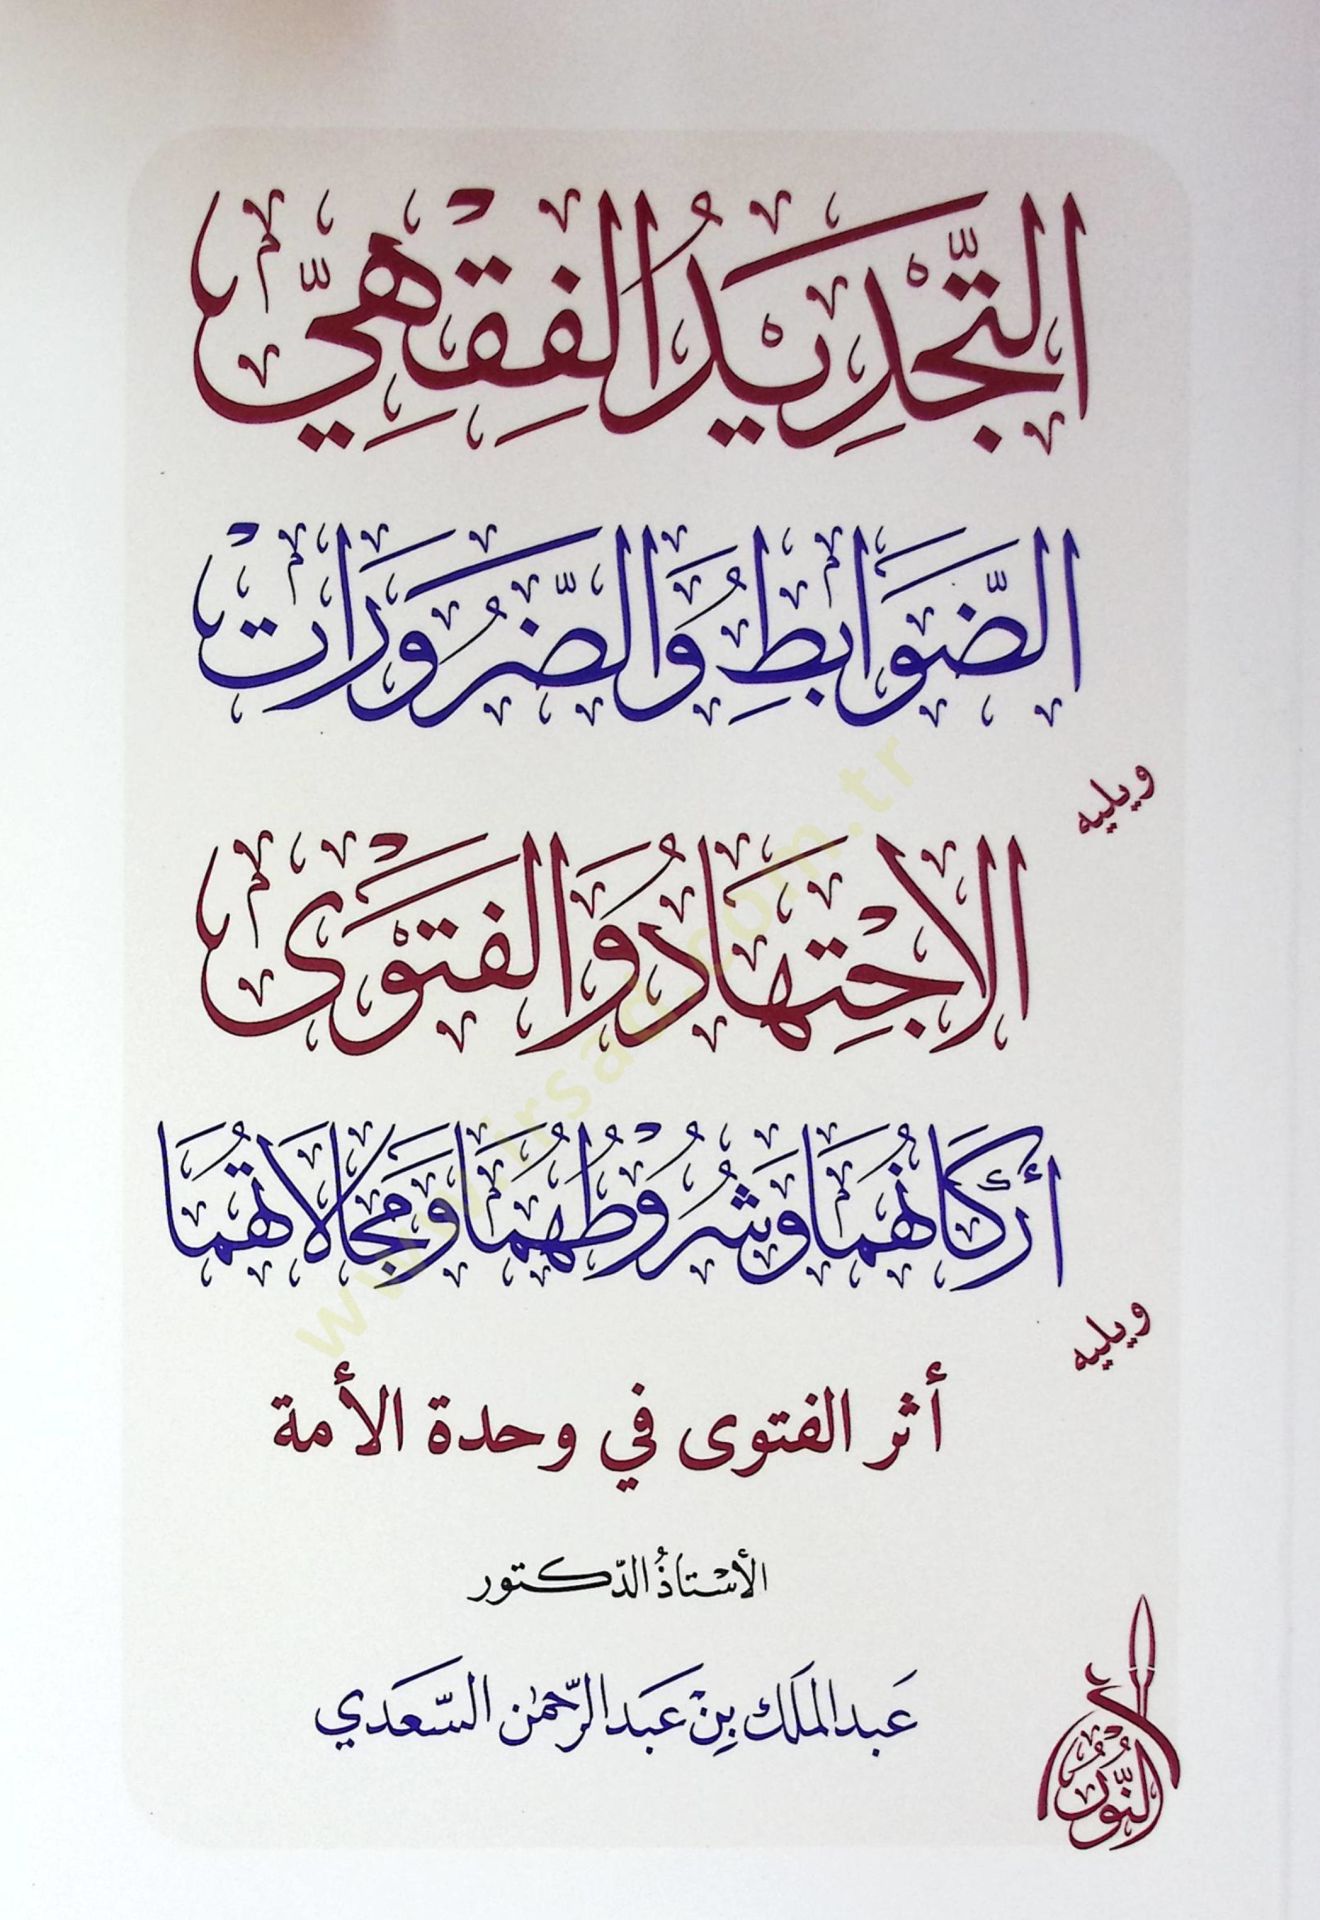 التَّجْدِيدُ الفِقْهِيُّ
الضَّوَابِطُ وَالضَّرُورَاتْ
ويليه
الاجْتِهَادُ وَالفَتْوَى
أَرْكَانُهُمَا وَشُرُوطُهُمَا وَمَجَالَاتُهُمَا
ويليه
أثر الفتوى في وحدة الأمة
الأسْتاذُ الدّكتور
عَبد المَلَك بِنْ عَبد الرَّحمٰن السَّعَدي
النُّورُ
www.irsad.com.tr